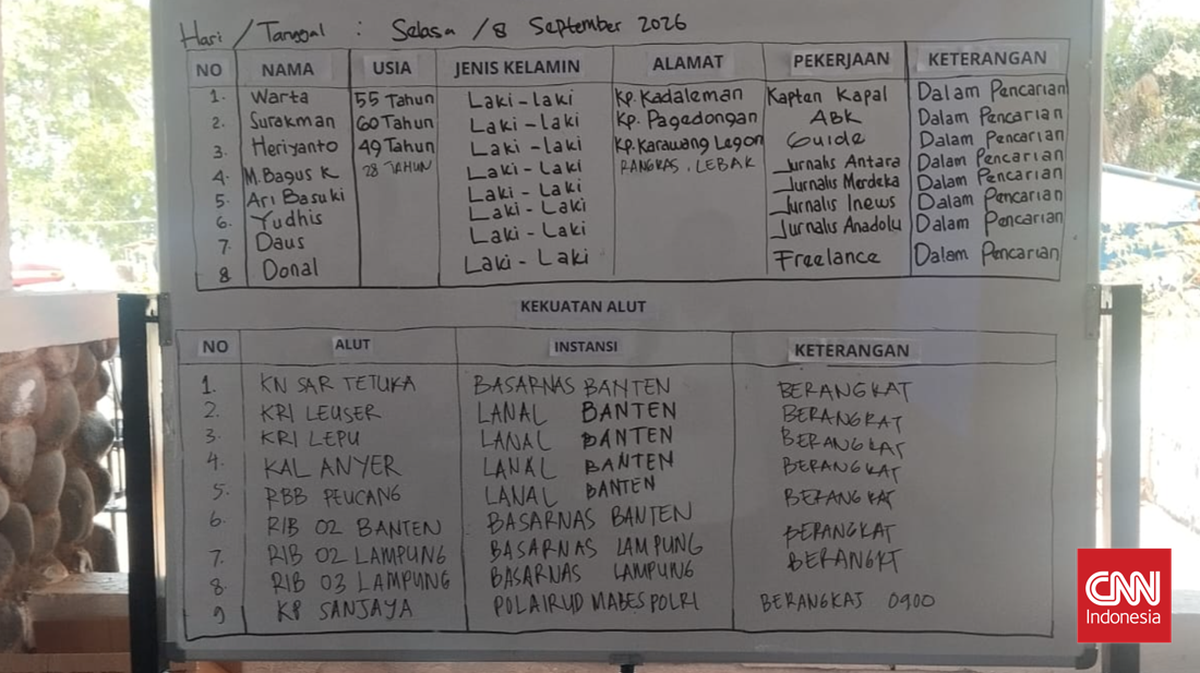 Hari / Tanggal : Selasa / 8 September 2026
NO NAMA USIA JENIS KELAMIN ALAMAT PEKERJAAN KETERANGAN
1. Warta 55 Tahun Laki-laki Kp. Kadaleman Kapten Kapal Dalam Pencarian
2. Surakman 60 Tahun Laki-laki Kp. Pagedongan ABK Dalam Pencarian
3. Heriyanto 49 Tahun Laki-laki Kp. Karawang Legon Guide Dalam Pencarian
4. M. Bagus K 28 TAHUN Laki-Laki RANGKAS, LEBAK Jurnalis Antara Dalam Pencarian
5. Ari Basuki Laki-Laki Jurnalis Merdeka Dalam Pencarian
6. Yudhis Laki-Laki Jurnalis Inews Dalam Pencarian
7. Daus Laki-Laki Jurnalis Anadolu Dalam Pencarian
8 Donal Laki-Laki Freelance Dalam Pencarian
KEKUATAN ALUT
NO ALUT INSTANSI KETERANGAN
1. KN SAR TETUKA BASARNAS BANTEN BERANGKAT
2. KRI LEUSER LANAL BANTEN BERANGKAT
3. KRI LEPU LANAL BANTEN BERANGKAT
4. KAL ANYER LANAL BANTEN BERANGKAT
5. RBB PEUCANG LANAL BANTEN BERANGKAT
6. RIB 02 BANTEN BASARNAS BANTEN BERANGKAT
7. RIB 02 LAMPUNG BASARNAS LAMPUNG BERANGKT
8. RIB 03 LAMPUNG BASARNAS LAMPUNG
9 KP SANJAYA POLAIRUD MABES POLRI BERANGKAT 0900
CNN
Indonesia